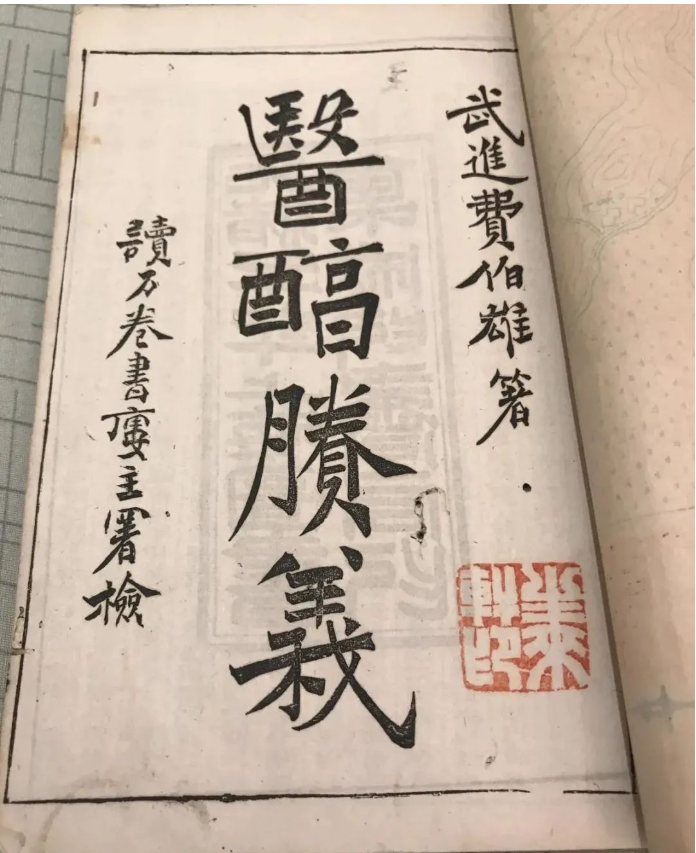 武進費伯雄箸
醫醕賸義
讀万卷書廔主署檢